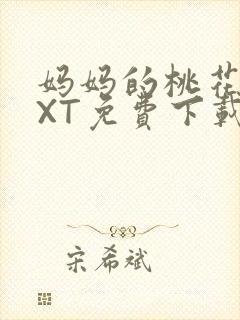 妈妈的桃花
XT免费下载
宋希斌